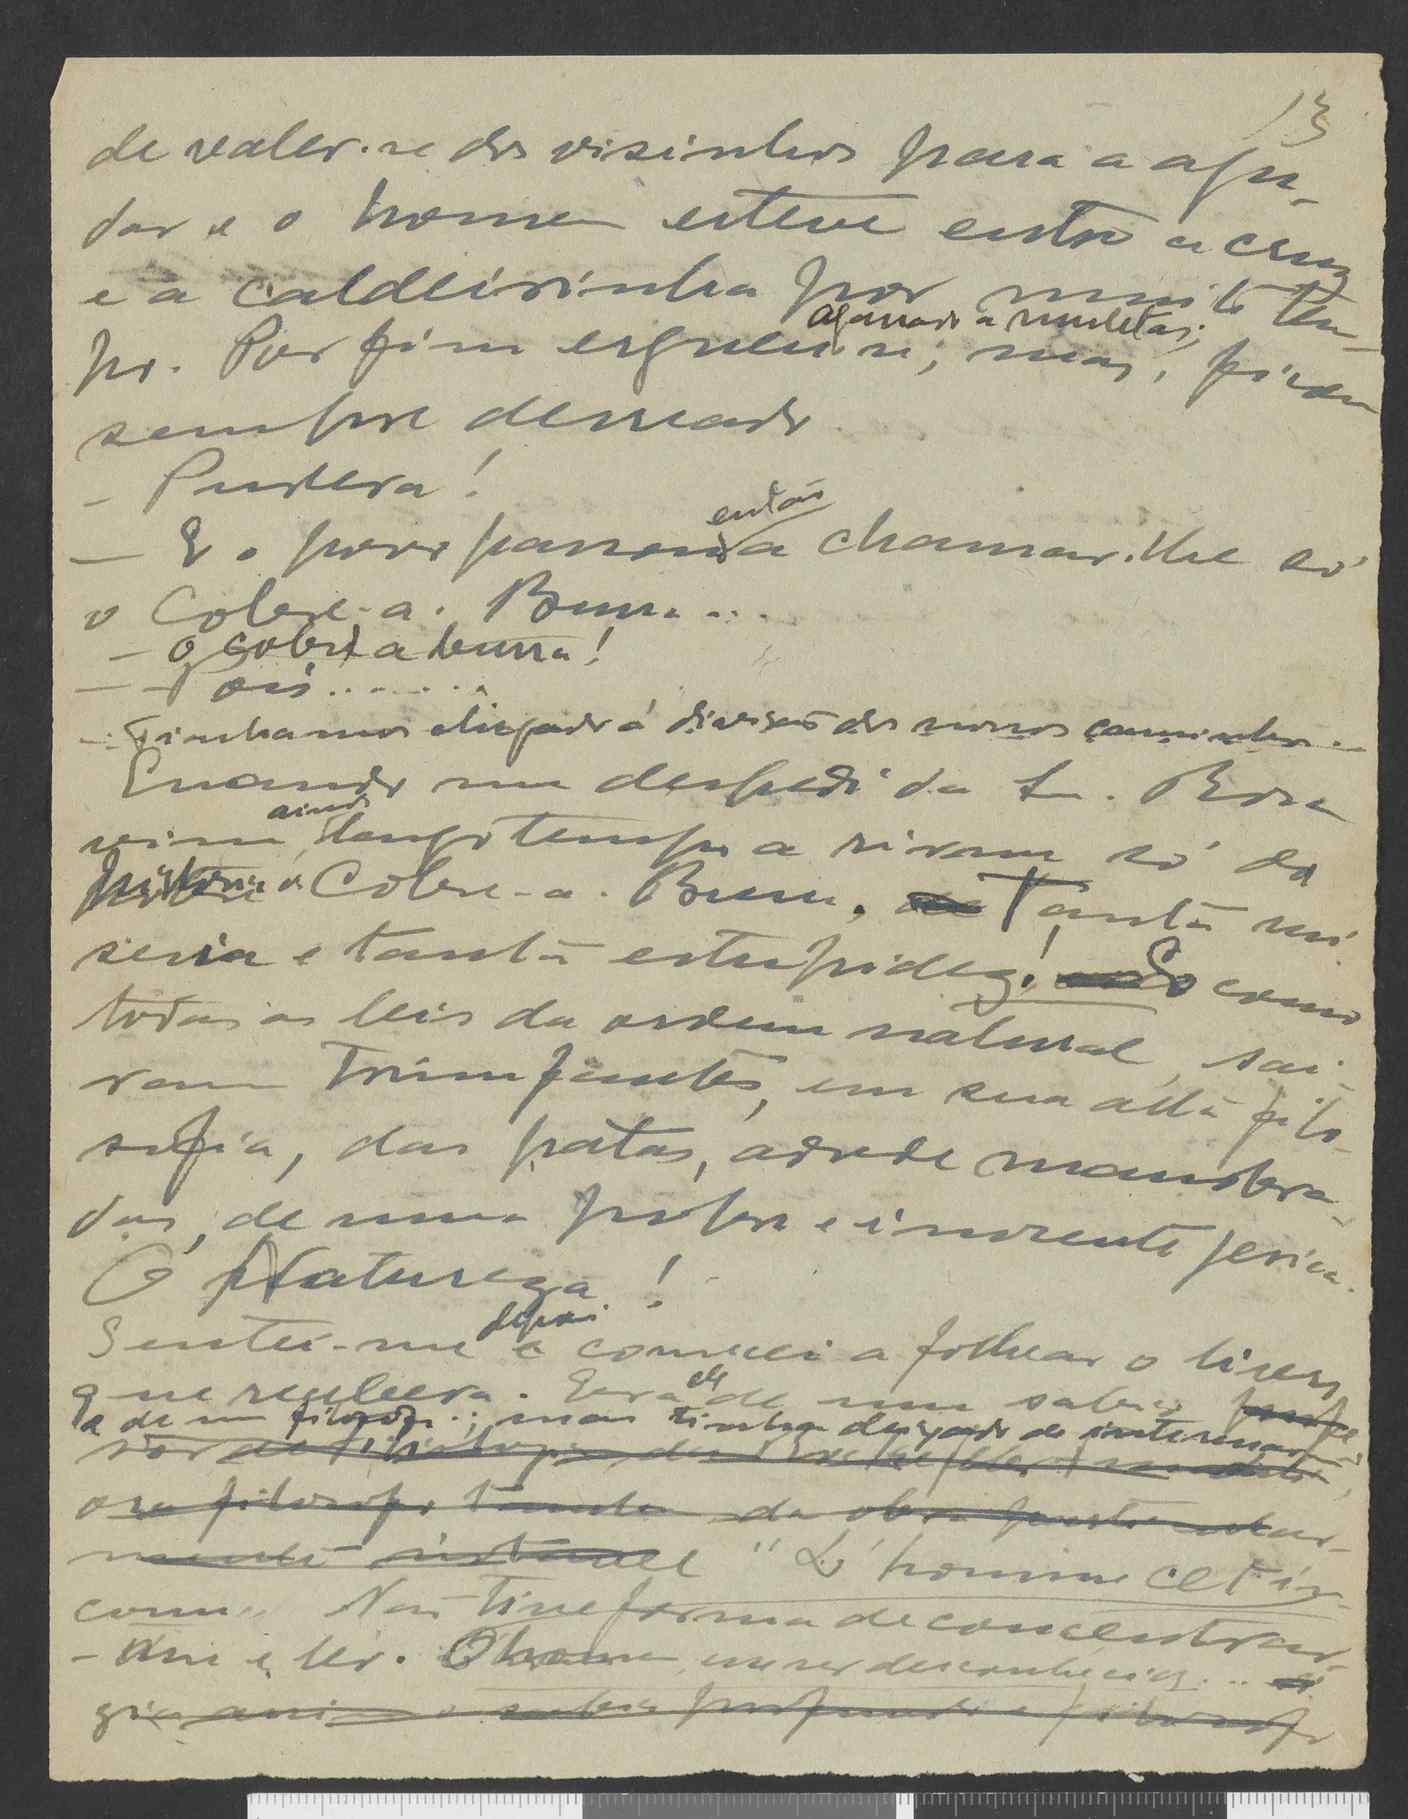 13
de valer-se dos visinhos para a aju-
dar e o homem esteve entre a cruz
e a caldeirinha por muito tem-
po. Por fim ergueu-se, agarrado a muletas; mas, ficou
sempre derreado.
- Pudera!
- E o povo passou então a chamar-lhe só
o Cobre-a-Burra...
- O Cobre a burra!
- Pois.......
- Tinhamos chegado á divisão dos nossos caminhos...
Quando me despedi da Sra. Rosa
vim, ainda, longo tempo a rir-me só da
historia do Cobre-a-Burra. Tanta mi-
seria e tanta estupidez! E como
todas as leis da ordem natural, sai-
ram triumfantes, em sua alta filo-
sofia, das patas, adrede manobra-
das, de uma pobre e inocente jerica.
O Natureza!
Sentei-me depois e comecei a folhear o livro
que recebera. Era ele de um sabio
e de um filosofo; mas tinha deixado de interessar-me,
"L'homme cet in-
connu" Não tive forma de concentrar-
-me e ler. O homem, um ser desconhecido...